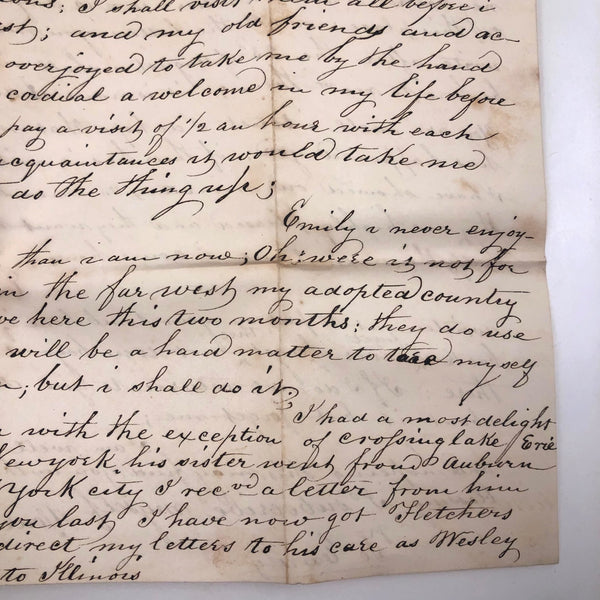 I shall visit them all before i
st; and my old friends and ac-
overjoyed to take me by the hand
cordial a welcome in my life before
pay a visit of 1/2 an hour with each
acquaintances it would take me
do the thing up;
Emily i never enjoy-
than i am now; Oh! were it not for
in the far west my adopted country
ve here this two months; they do use
will be a hard matter to myself
; but i shall do it;
I had a most delight
with the exception of crossing lake Erie
Newyork his sister went from Auburn
York city I recvd a letter from him
you last I have now got Fletchers
direct my letters to his care as Wesley
to Illinois